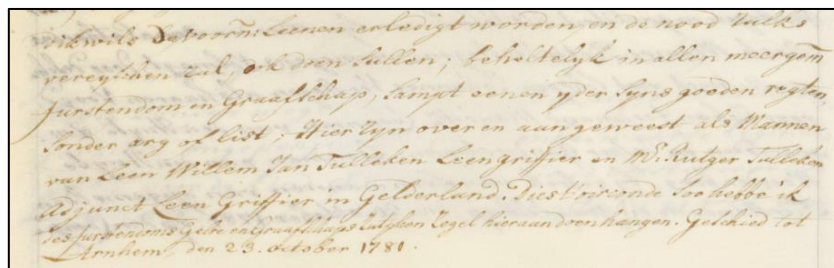 dikwils de voorn: Leenen erledigt worden en de nood zulks
vereysschen zal, ook doen sullen; beheltelyk in allen meergem
furstendom en Graafschap, sampt eenen yder syns goeden regten,
sonder arg of list; Hier zyn over en aangeweest als Mannen
van Leen Willem Jan Tulleken Leengriffier en Mr. Rutger Tulleken
Adjunct Leen Griffier in Gelderland. Dies t'oirconde soo hebbe ik
des furstendoms Gelre en Graafschaps Zutphen Zegel hieraan doen hangen. Geschied tot
Arnhem, den 23. october 1781.